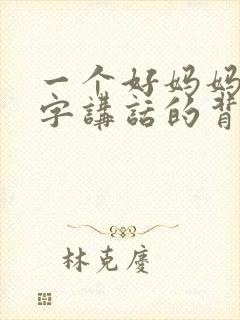 一个好妈妈
字講話的背
林克慶